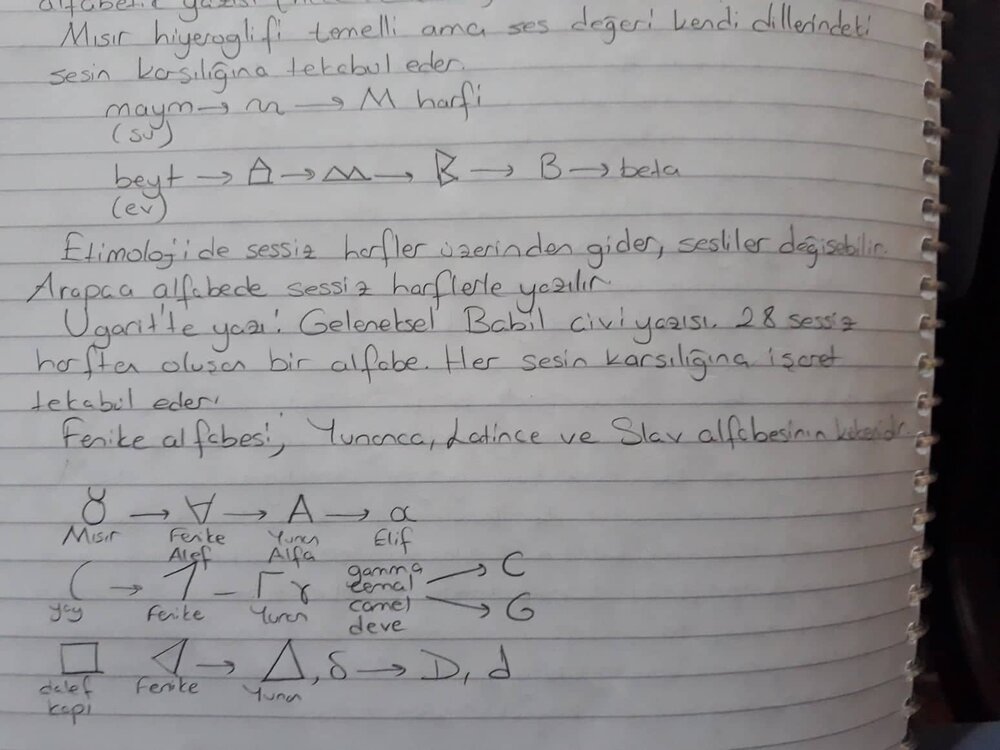 alfabetik yazısı
Mısır hiyeroglifi temelli ama ses değeri kendi dillerindeki
sesin karşılığına tekabul eder.
maym → m → M harfi
(su)
beyt → → → B → B → beta
(ev)
Etimolojide sessiz harfler üzerinden gider, sesliler değişebilir.
Arapça alfabede sessiz harflerle yazılır
Ugarit'te yazı: Geleneksel Babil çivi yazısı. 28 sessiz
harften oluşan bir alfabe. Her sesin karşılığına işaret
tekabül eder.
Fenike alfabesi; Yunanca, Latince ve Slav alfabesinin kökenidir.
→ ∀ → A → α
Mısır Fenike Yunan Elif
Alef Alfa
( → – Γ γ gamma cemal camel deve → C → G
yay Fenike Yunan
→ Δ, δ → D, d
dalef Fenike Yunan
kapı